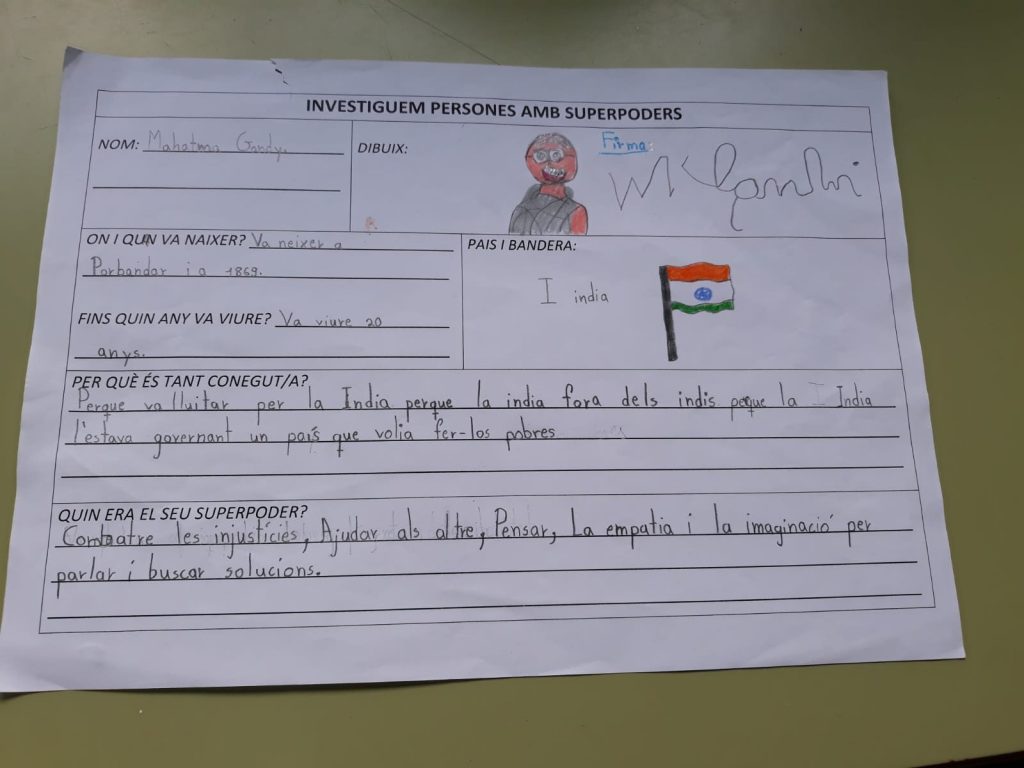 INVESTIGUEM PERSONES AMB SUPERPODERS
NOM: Mahatma Gandy.
DIBUIX:
Firma:
MK Gandhi
ON I QUAN VA NAIXER? Va neixer a
Porbandar i a 1869.
FINS QUIN ANY VA VIURE? Va viure 20
anys.
PAIS I BANDERA:
I india
PER QUÈ ÉS TANT CONEGUT/A?
Perque va lluitar per la India perque la india fora dels indis perque la I India
l'estava governant un país que volia fer-los pobres
QUIN ERA EL SEU SUPERPODER?
Combatre les injustícies, Ajudar als altre, Pensar, La empatia i la imaginació per
parlar i buscar solucions.